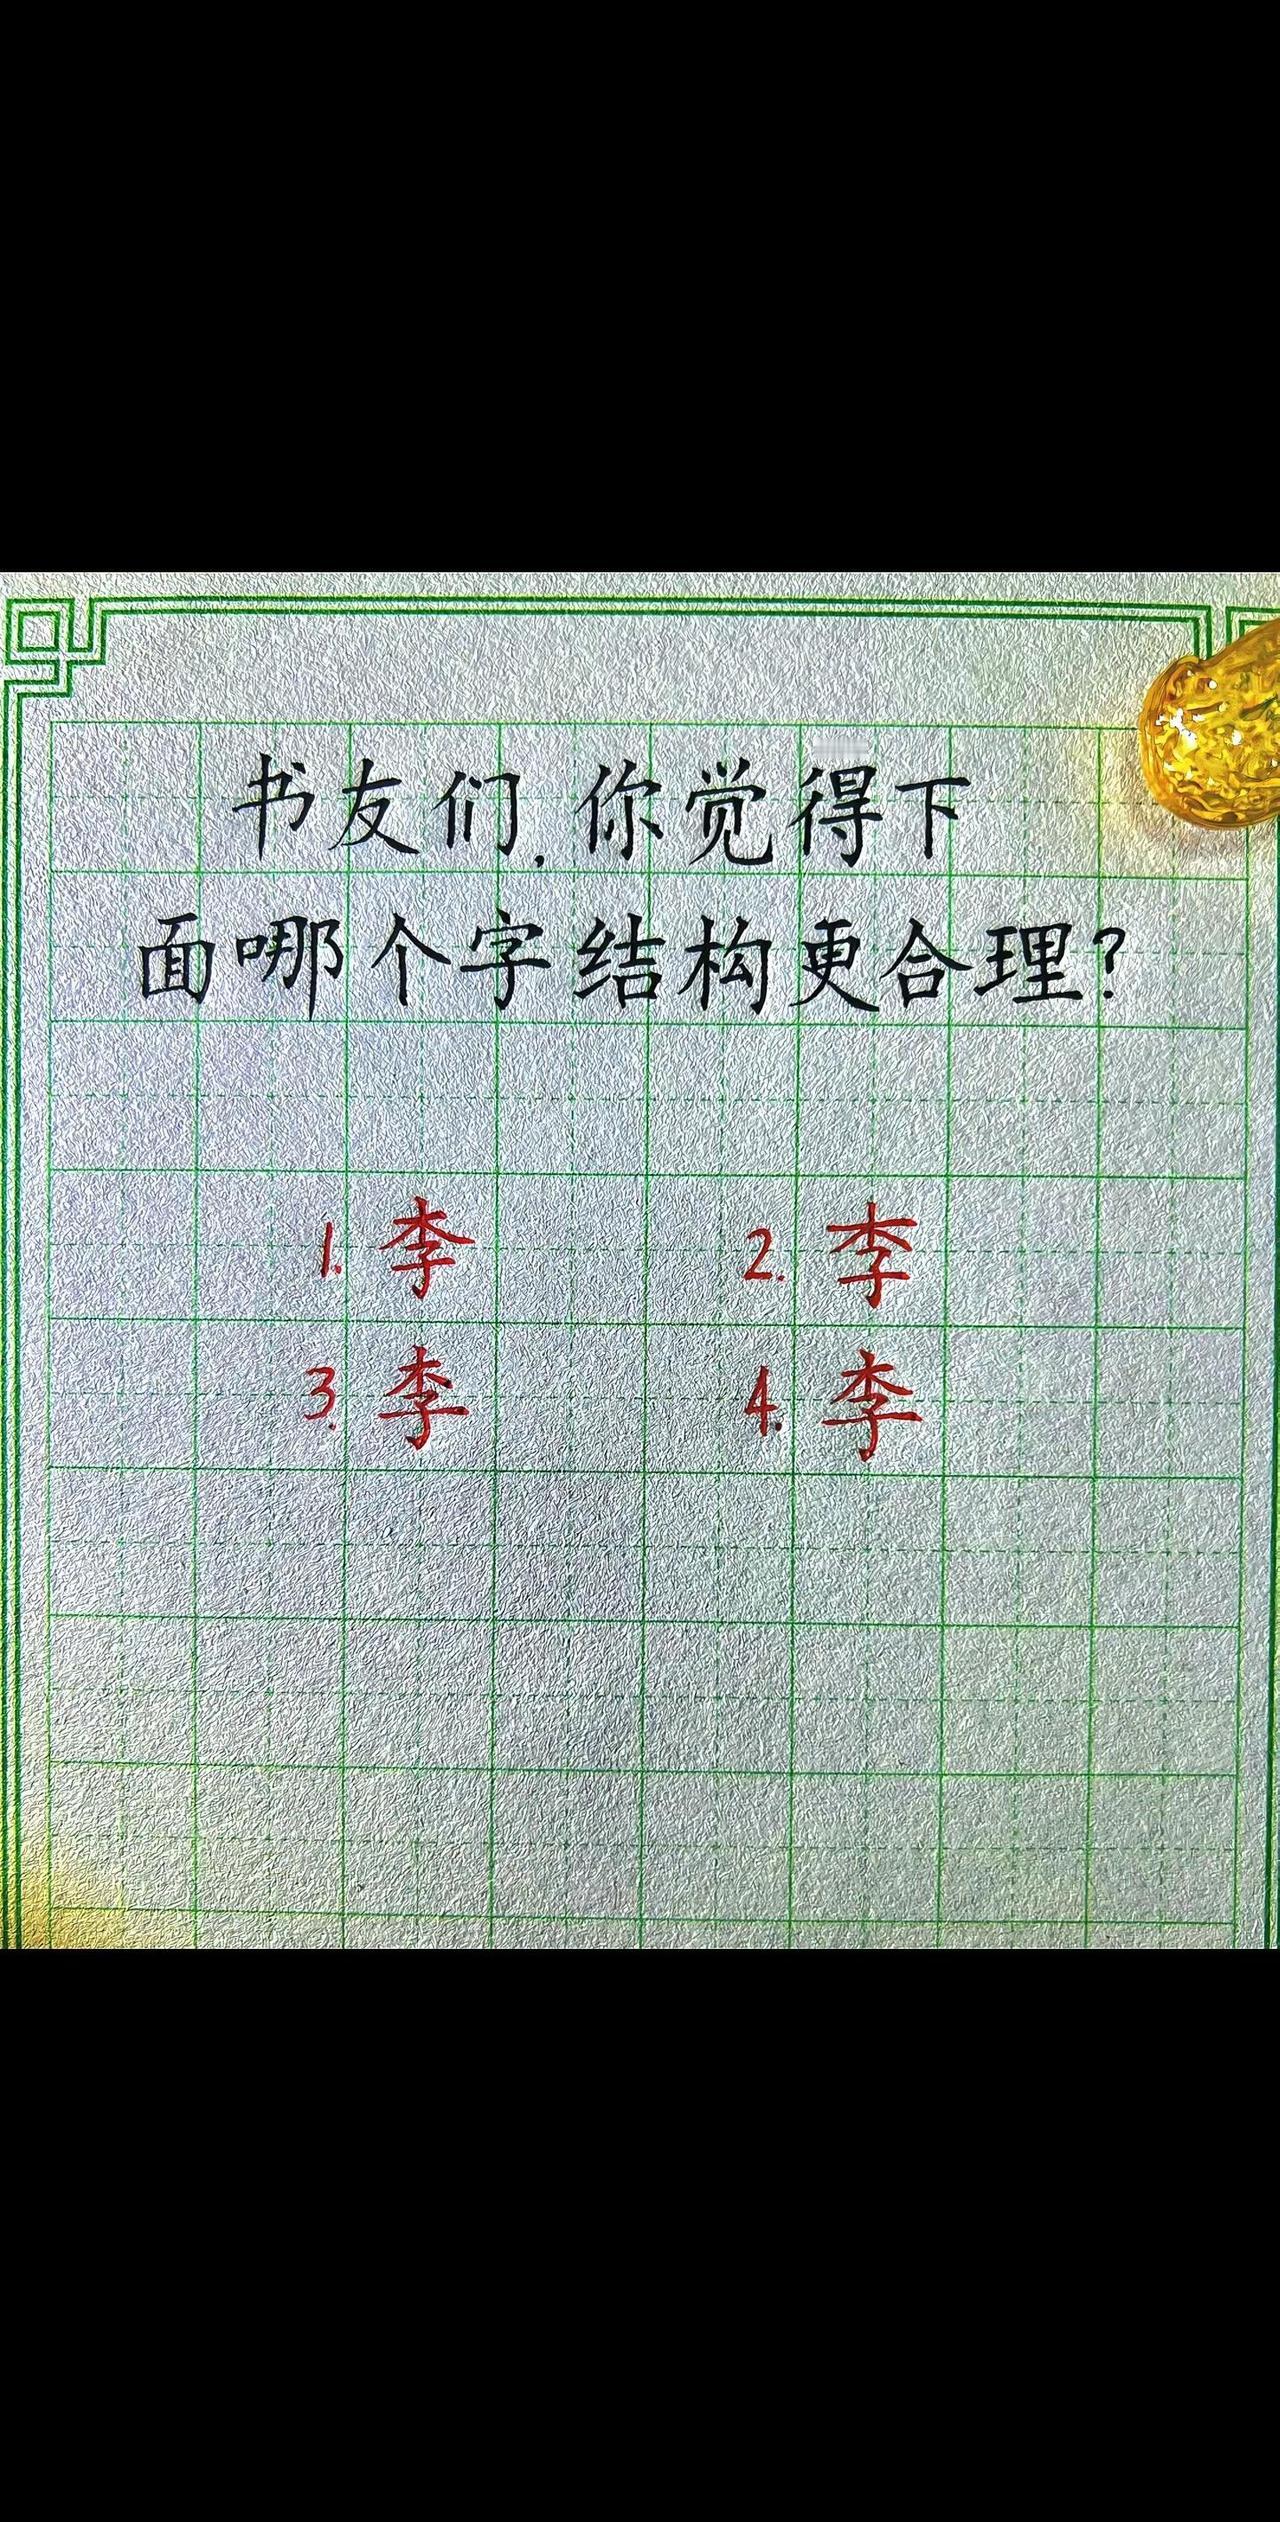 书友们,你觉得下
面哪个字结构更合理?
1. 李 2. 李
3. 李 4. 李